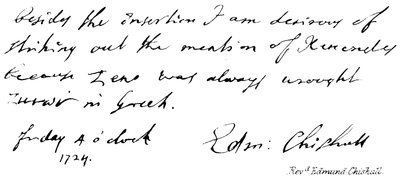 Besides the insertion I am desirous of
striking out the mention of
because Zeno was always
in Greek.
Friday 4 o'clock Edm: Chishull
1724.
Revd Edmund Chishull.